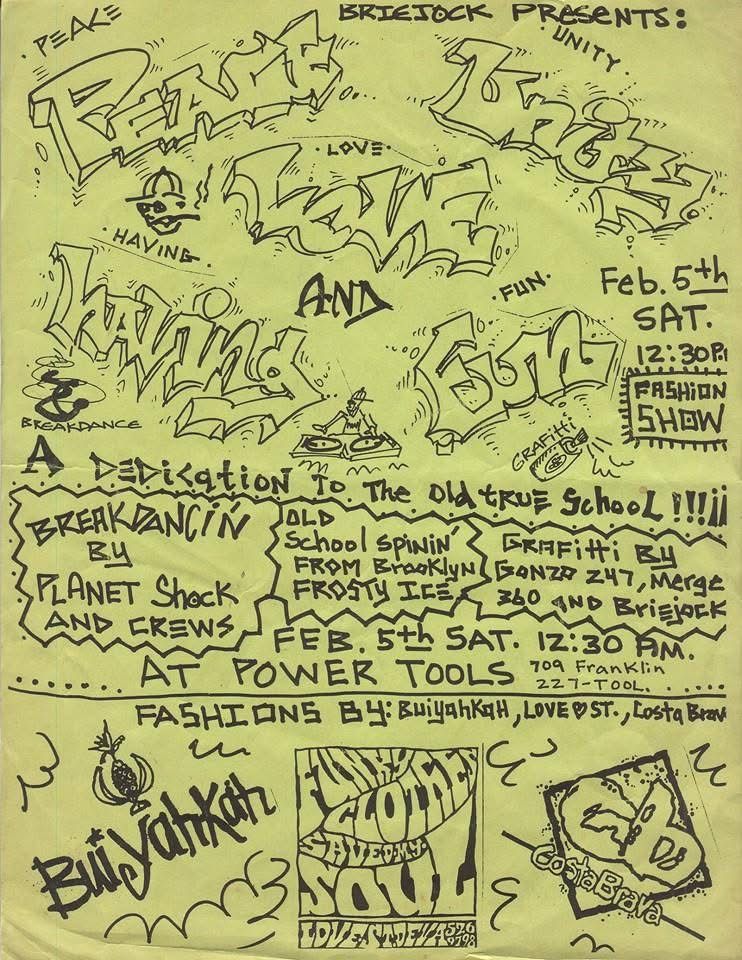 BRIEJOCK PRESENTS:
· PEACE ·
PEACE
· UNITY ·
Unity
· LOVE ·
LOVE
· HAVING ·
having
AND
· FUN ·
Fun
Feb. 5th
SAT.
12:30P
FASHION
SHOW
BREAKDANCE
GRAFitti
A DEDication To The Old tRUE School!!!¡¡
BREAKDANCIN'
BY
PLANET Shock
AND CREWS
OLD
School Spinin'
FROM Brooklyn
FROSTY ICE
GRAFitti BY
GONZO 247, Merge
360 AND Briejock
FEB. 5th SAT. 12:30 AM.
AT POWER TOOLS
709 Franklin
227-TOOL.
FASHIONS BY: BuiyahKaH, LOVE ♥ ST., Costa Brav
BuiYahKah
FUNKY
CLOTHES
SAVED MY
SOUL
LOVE STREET
526
CB
CostaBrava